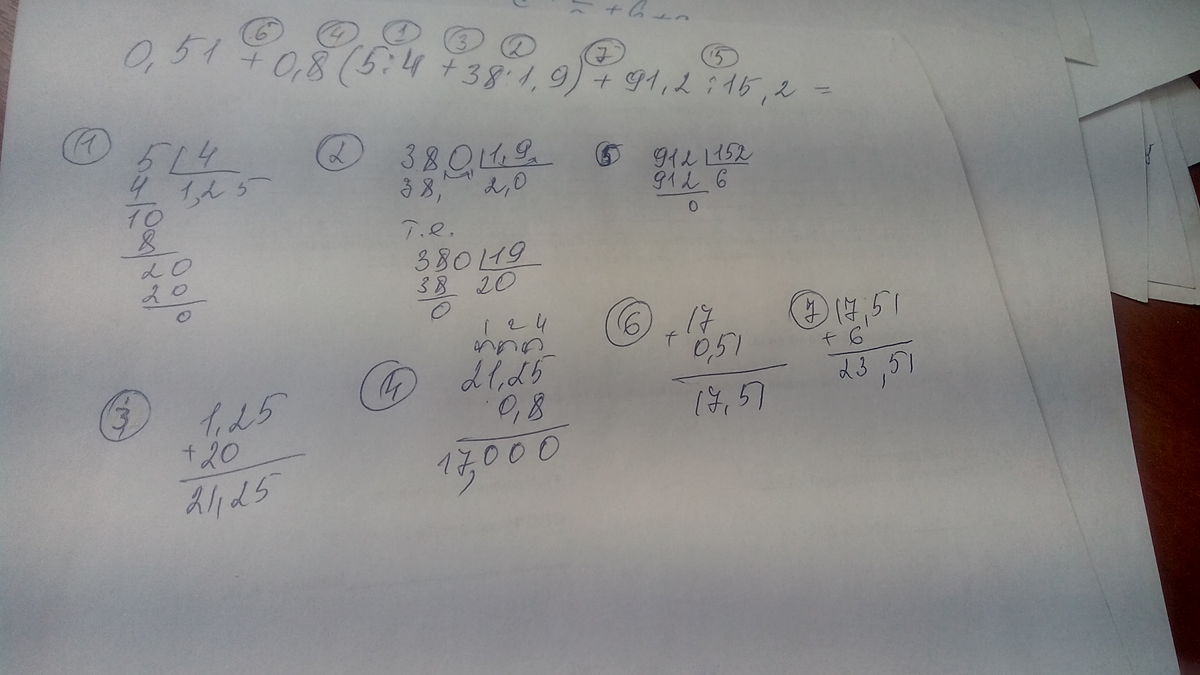 ⑥ ④ ① ③ ② ⑦ ⑤
0,51 + 0,8 (5:4 + 38:1,9) + 91,2 : 15,2 =
①
5 | 4
4 1,25
10
8
20
20
0
②
380 | 1,9
38, 2,0
т.е.
380 | 19
38 20
0
5
912 | 152
912 6
0
③
1,25
+ 20
21,25
④
1 2 4
21,25
0,8
17,000
⑥
+ 17
0,51
17,51
⑦
17,51
+ 6
23,51